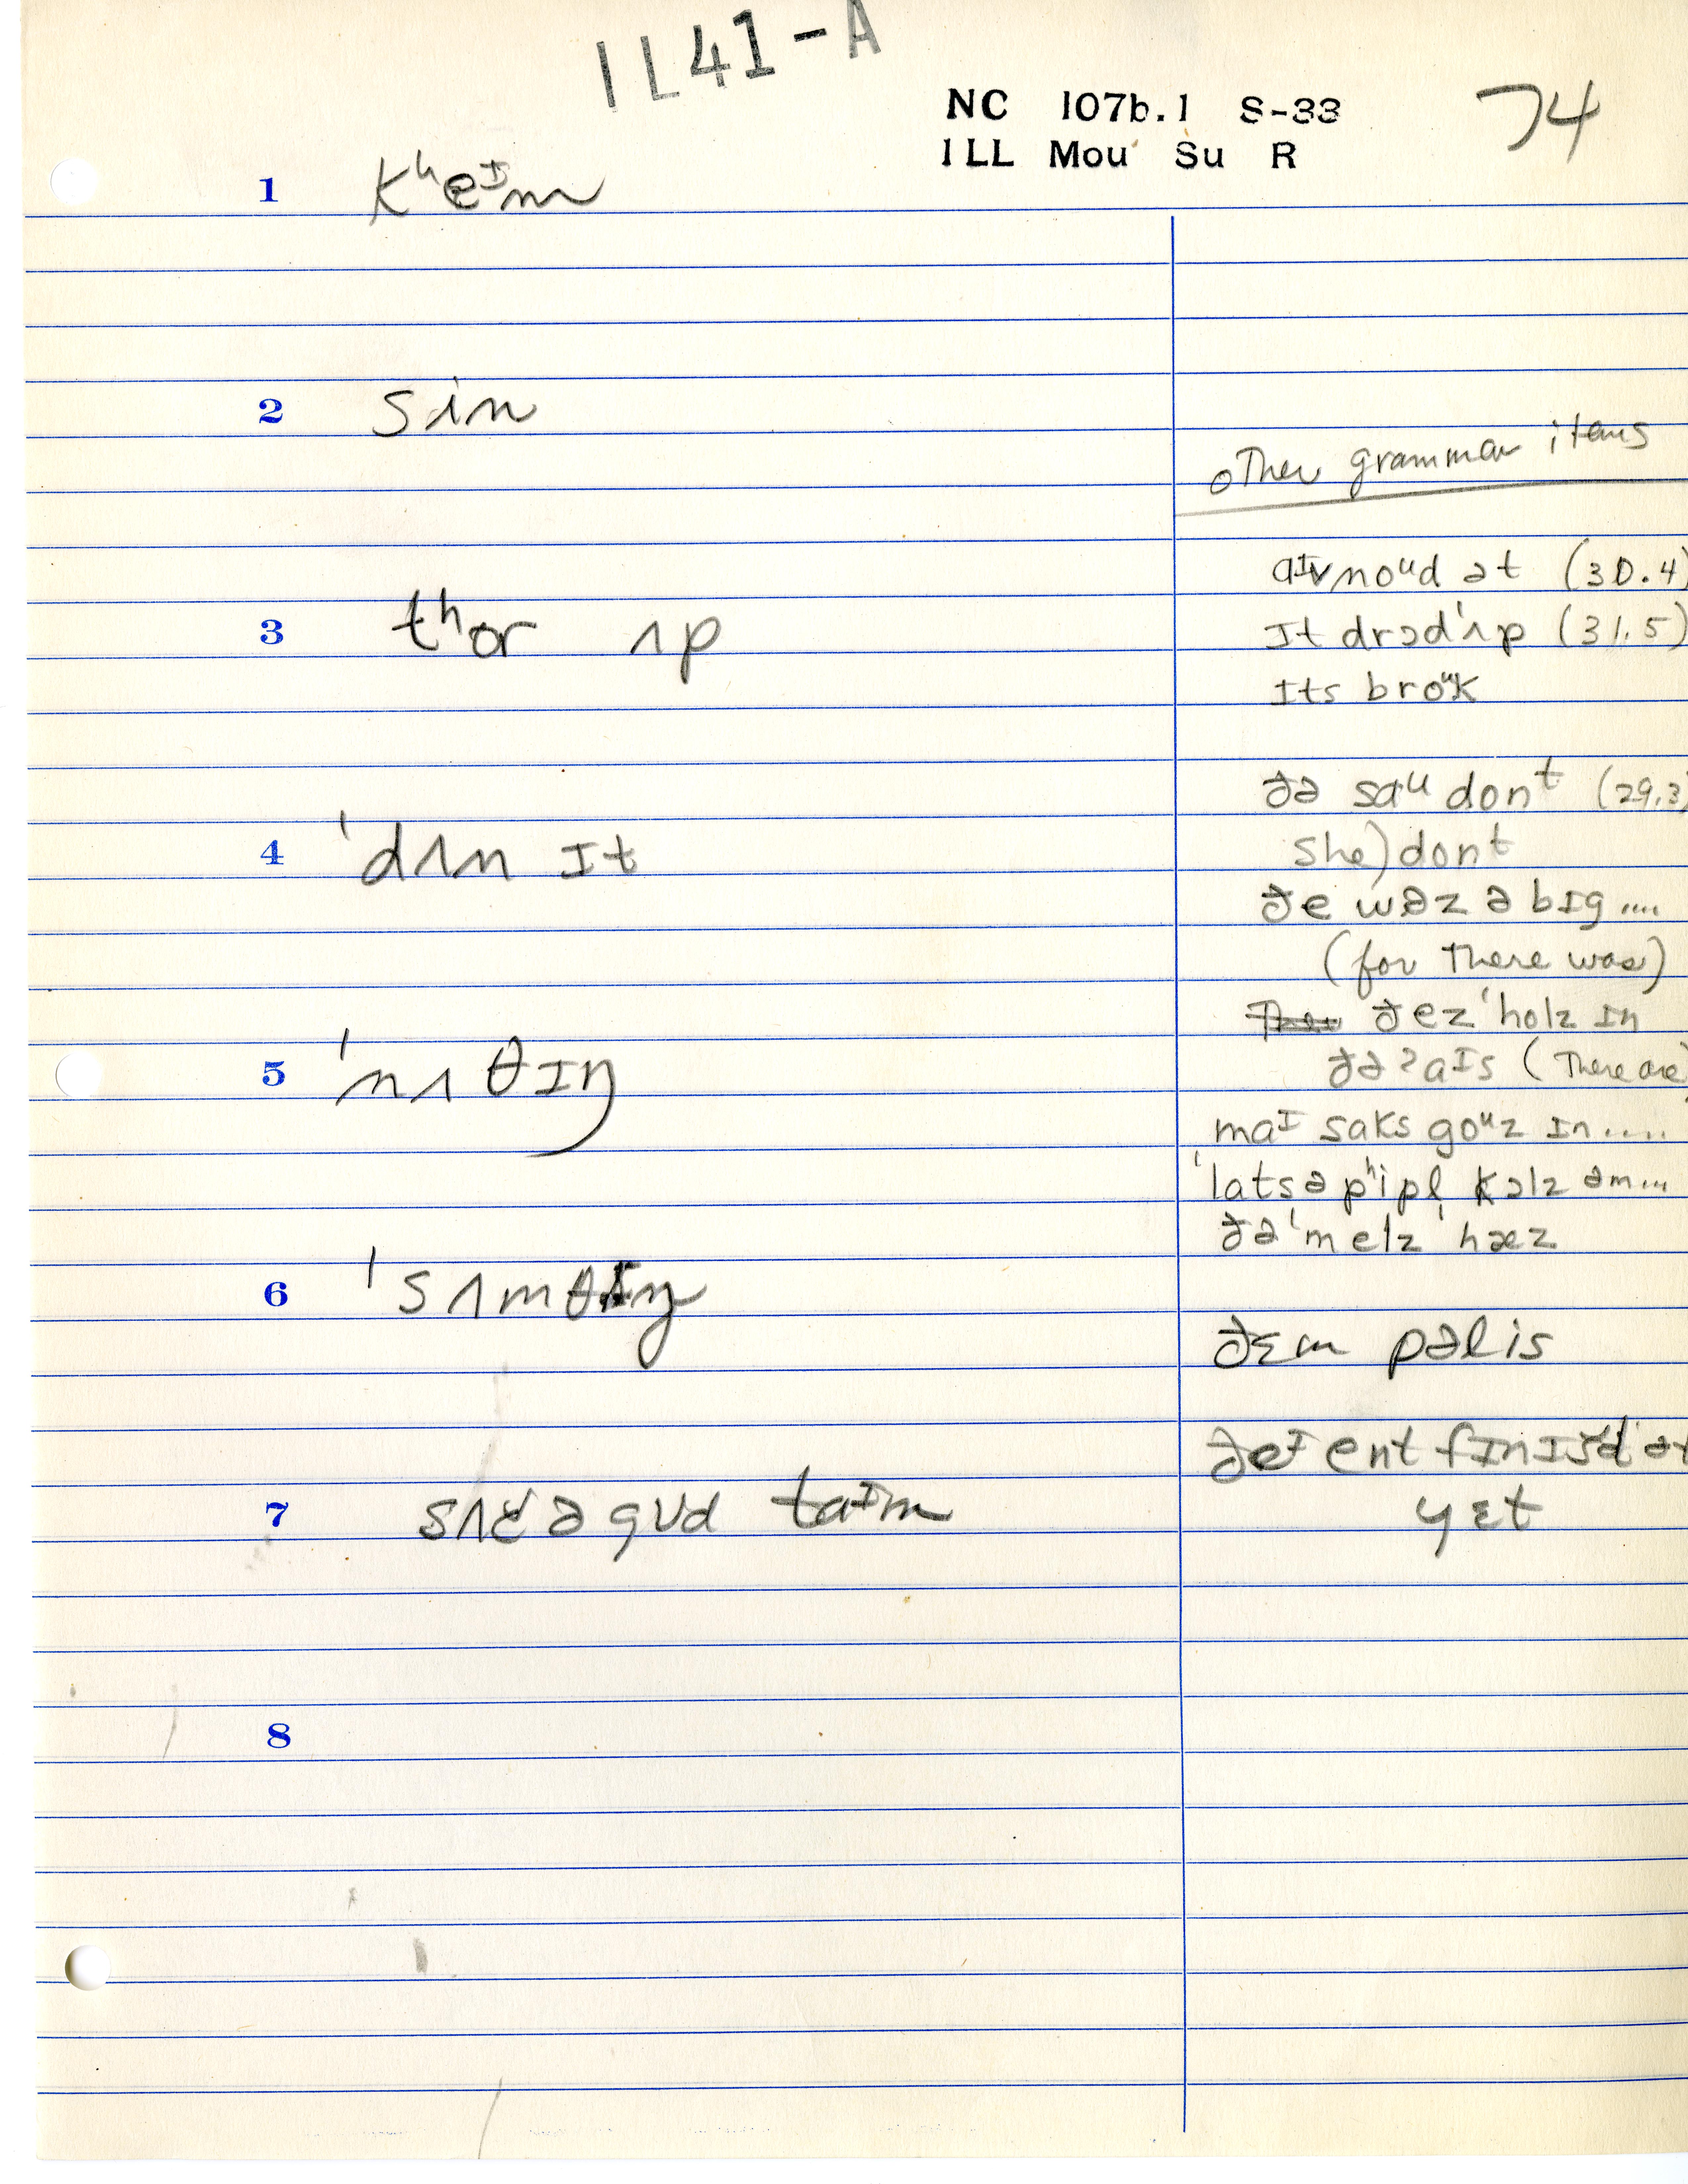 1L41-A
NC 107b.1 S-33
ILL Mou Su R
74
1 kʰeᴵm
2 sin
3 tʰor ʌp
4 'dʌn ɪt
5 'nʌθɪŋ
6 'sʌmθɪŋ
7 sʌč ə gʊd taᴵm
8
other grammar items
aᴵv noᵘd ət (30.4)
ɪt drɔd'ʌp (31.5)
ɪts broᵘk
ðə saᵘ donᵗ (29.3)
she) donᵗ
ðe wəz ə bɪg ....
(for There was)
ðez 'holz ɪn
ðə ʔaᴵs (There are)
maᴵ saks goᵘz ɪn ....
'lats ə pʰipl̩ kɔlz əm...
ðə 'melz 'hæz
ðɛm pəlis
ðeᴵ ent fɪnɪšd ət
yɛt